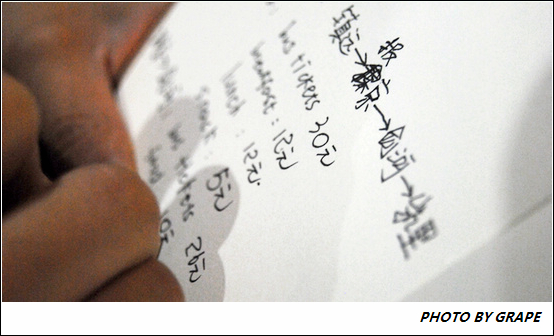 镇远→报京→剑河→
bus tickets 30元
breakfast : 12元
lunch : 12元
5元
bus tickets 26元
10元
PHOTO BY GRAPE